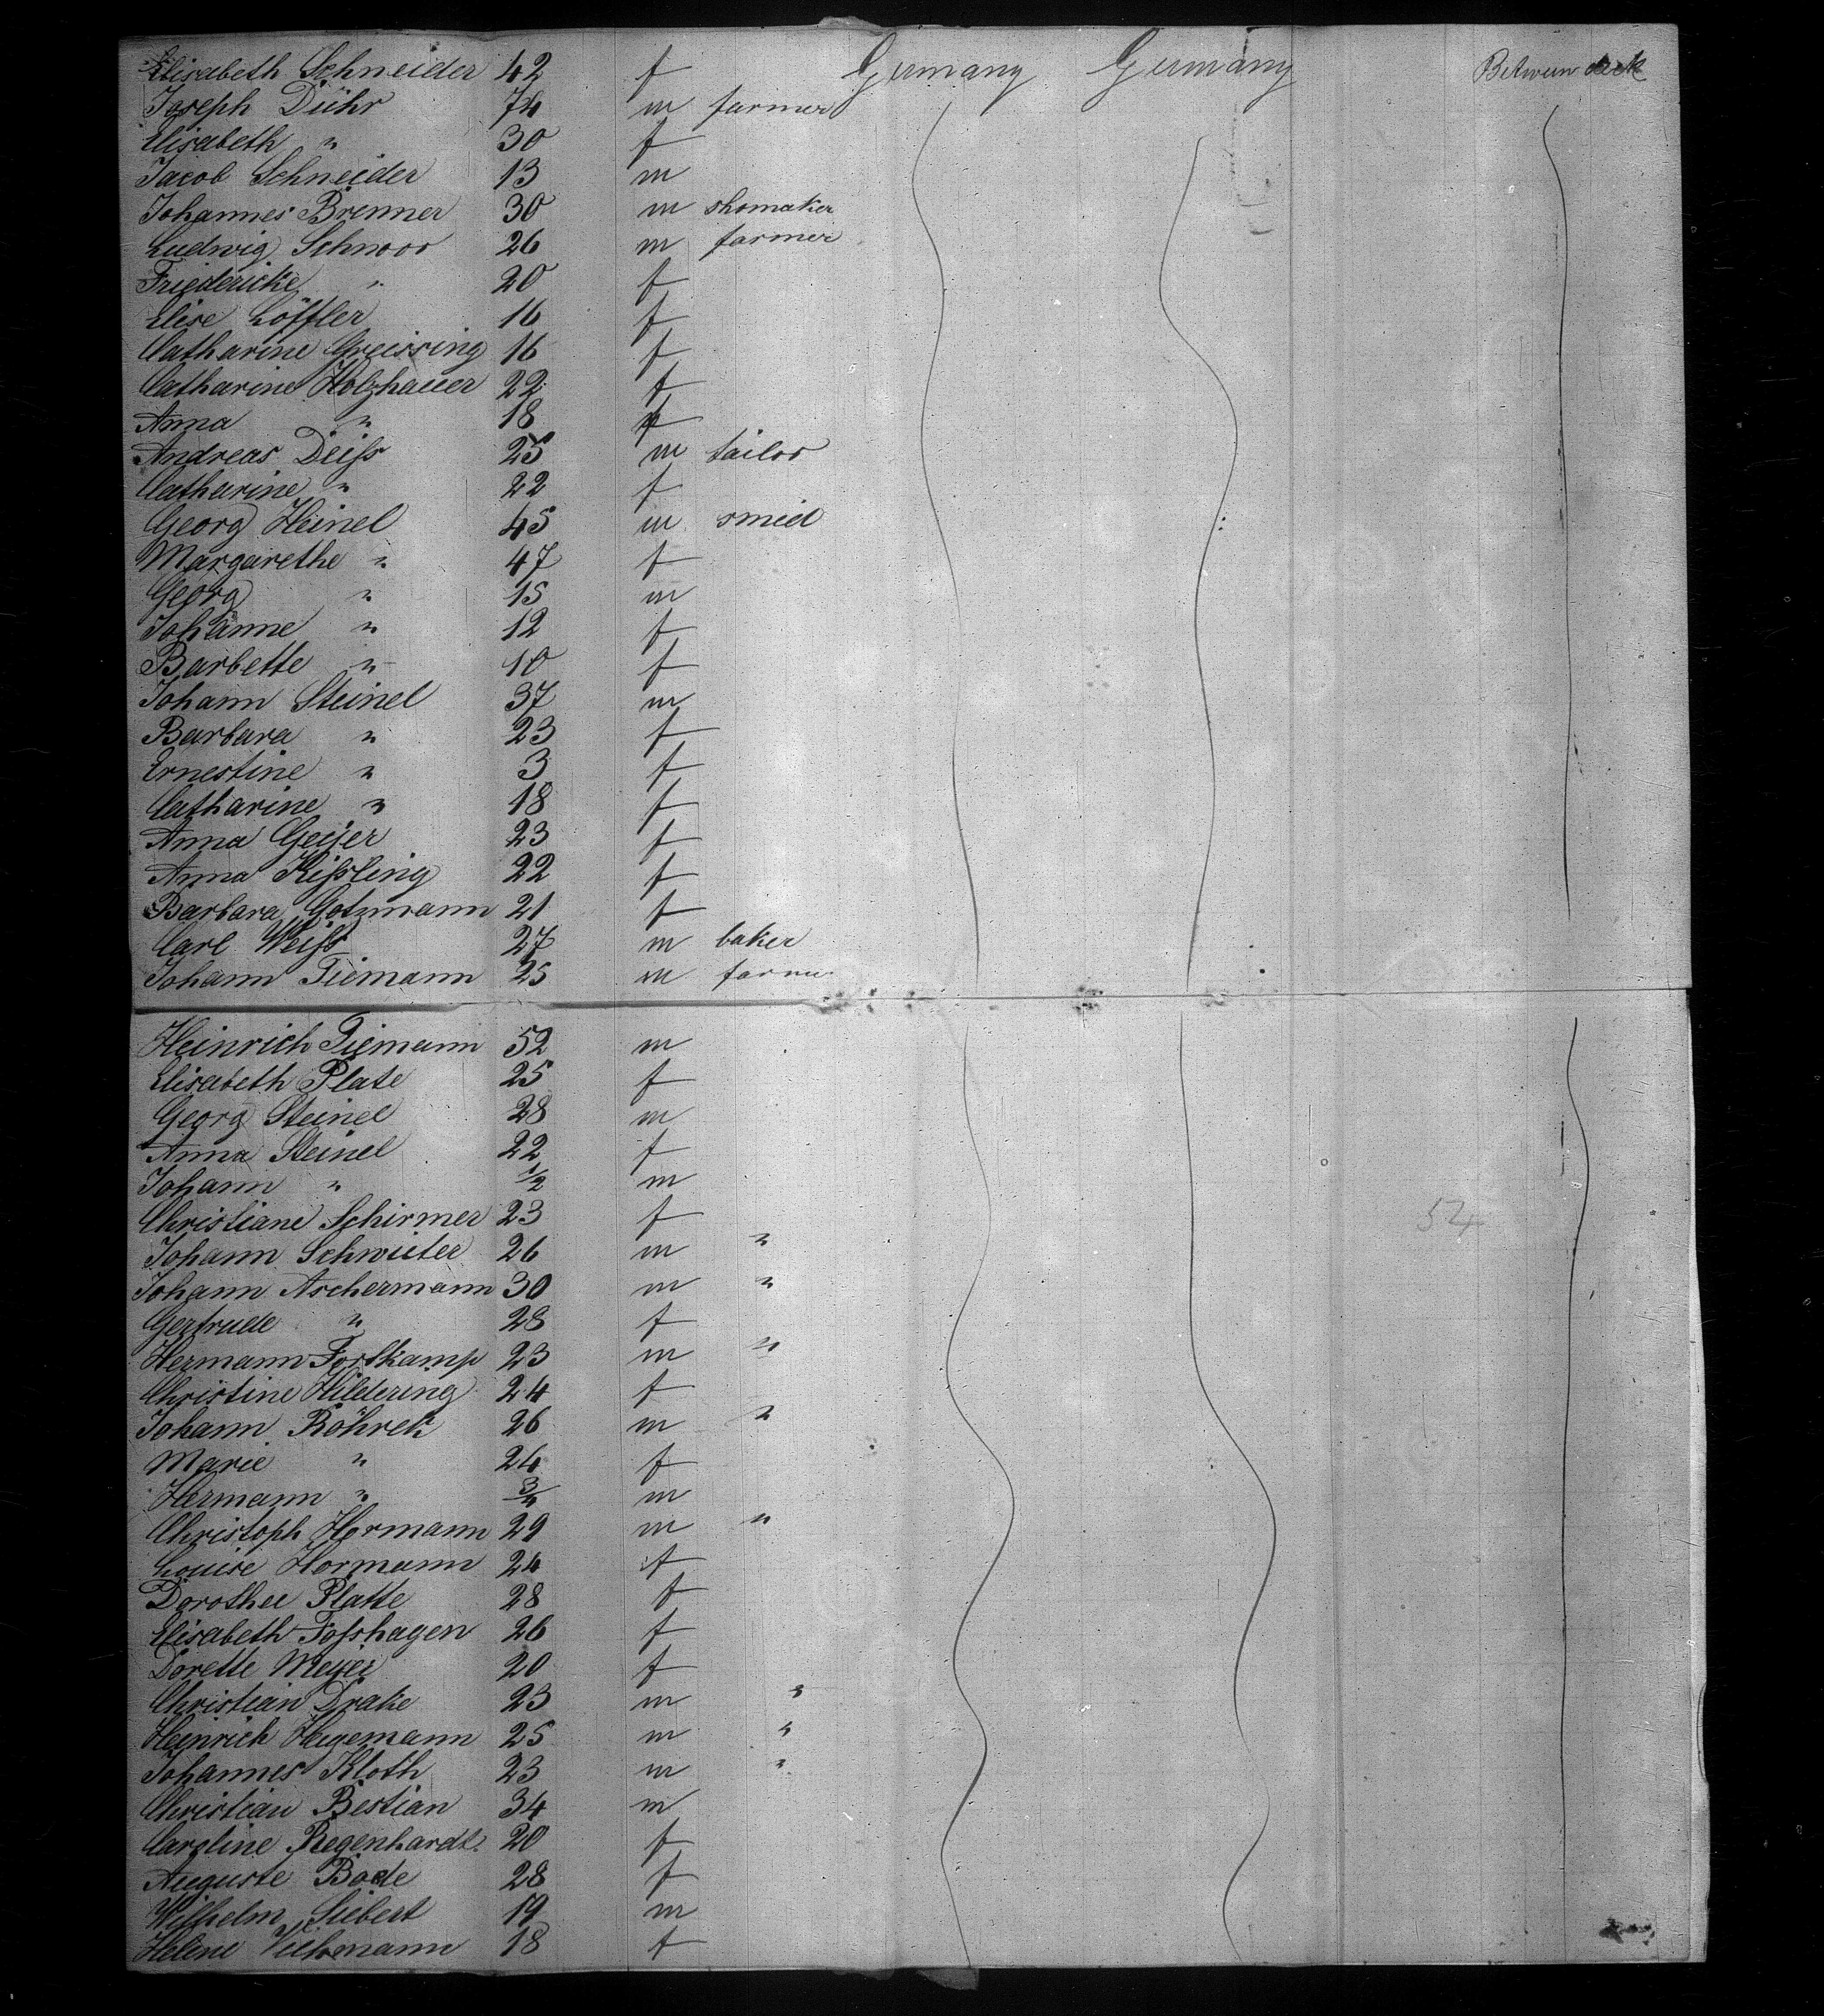 Elisabeth Schneider 42 f Germany Germany Between deck
Joseph Dühr 74 m farmer
Elisabeth " 30 f
Jacob Schneider 13 m
Johannes Brenner 30 m shomaker
Ludwig Schnoor 26 m farmer
Friedericke " 20 f
Elise Löffler 16 f
Catharine Greissing 16 f
Catharine Holzhauer 22 f
Anna " 18 f
Andreas Deiſs 25 m tailor
Catharine " 22 f
Georg Heinel 45 m smied
Margarethe " 47 f
Georg " 15 m
Johanne " 12 f
Barbette " 10 f
Johann Steinel 37 m
Barbara " 23 f
Ernestine " 3 f
Catharine " 18 f
Anna Geijer 23 f
Anna Kiſsling 22 f
Barbara Gotzmann 21 f
Carl Weiſs 27 m baker
Johann Tiemann 25 m farmer
Heinrich Tiemann 52 m
Elisabeth Plate 25 f
Georg Steinel 28 m
Anna Steinel 22 f
Johann " 1/2 m
Christiane Schirmer 23 f 54
Johann Schwieter 26 m "
Johann Aschermann 30 m "
Gertrude " 28 f
Hermann Fortkamp 23 m "
Christine Hildering 24 f
Johann Röhrek 26 m "
Marie " 24 f
Hermann " 3/4 m
Christoph Hormann 29 m "
Louise Hormann 24 f
Dorothee Platte 28 f
Elisabeth Foſshagen 26 f
Dorette Meijer 20 f
Christian Drake 23 m "
Heinrich Hagemann 25 m "
Johannes Kloth 23 m "
Christian Bestian 34 m
Caroline Regenhardt 20 f
Auguste Bode 28 f
Wilhelm Siebert 19 m
Helene Viehmann 18 f